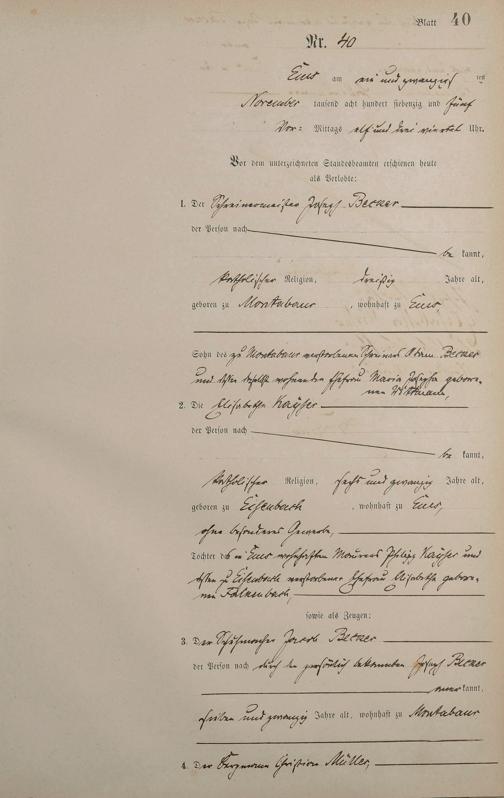 Blatt 40
Nr. 40
Ems am ein und zwanzigsten
November tausend acht hundert siebenzig und fünf
Vor: Mittags elf und drei viertel Uhr.
Vor dem unterzeichneten Standesbeamten erschienen heute
als Verlobte:
1. Der Schreinermeister Joseph Becker
der Person nach
be kannt,
katholischer Religion, dreißig Jahre alt,
geboren zu Montabaur, wohnhaft zu Ems,
Sohn des zu Montabaur verstorbenen Schreiners Adam Becker
und dessen daselbst wohnenden Ehefrau Maria Josepha gebore-
nen
2. Die Elisabetha Kayser
der Person nach
be kannt,
katholischer Religion, sechs und zwanzig Jahre alt,
geboren zu Eisenbach, wohnhaft zu Ems,
ohne besonderes Gewerbe,
Tochter des zu Ems wohnhaften Maurers Philipp Kayser und
dessen zu Eisenbach verstorbener Ehefrau Elisabetha gebore-
nen Falkenbach,
sowie als Zeugen:
3. Der Schuhmacher Jacob Becker
der Person nach durch den persönlich bekannten Joseph Becker
aner kannt,
sieben und zwanzig Jahre alt, wohnhaft zu Montabaur
4. Der Bergmann Christian Müller,